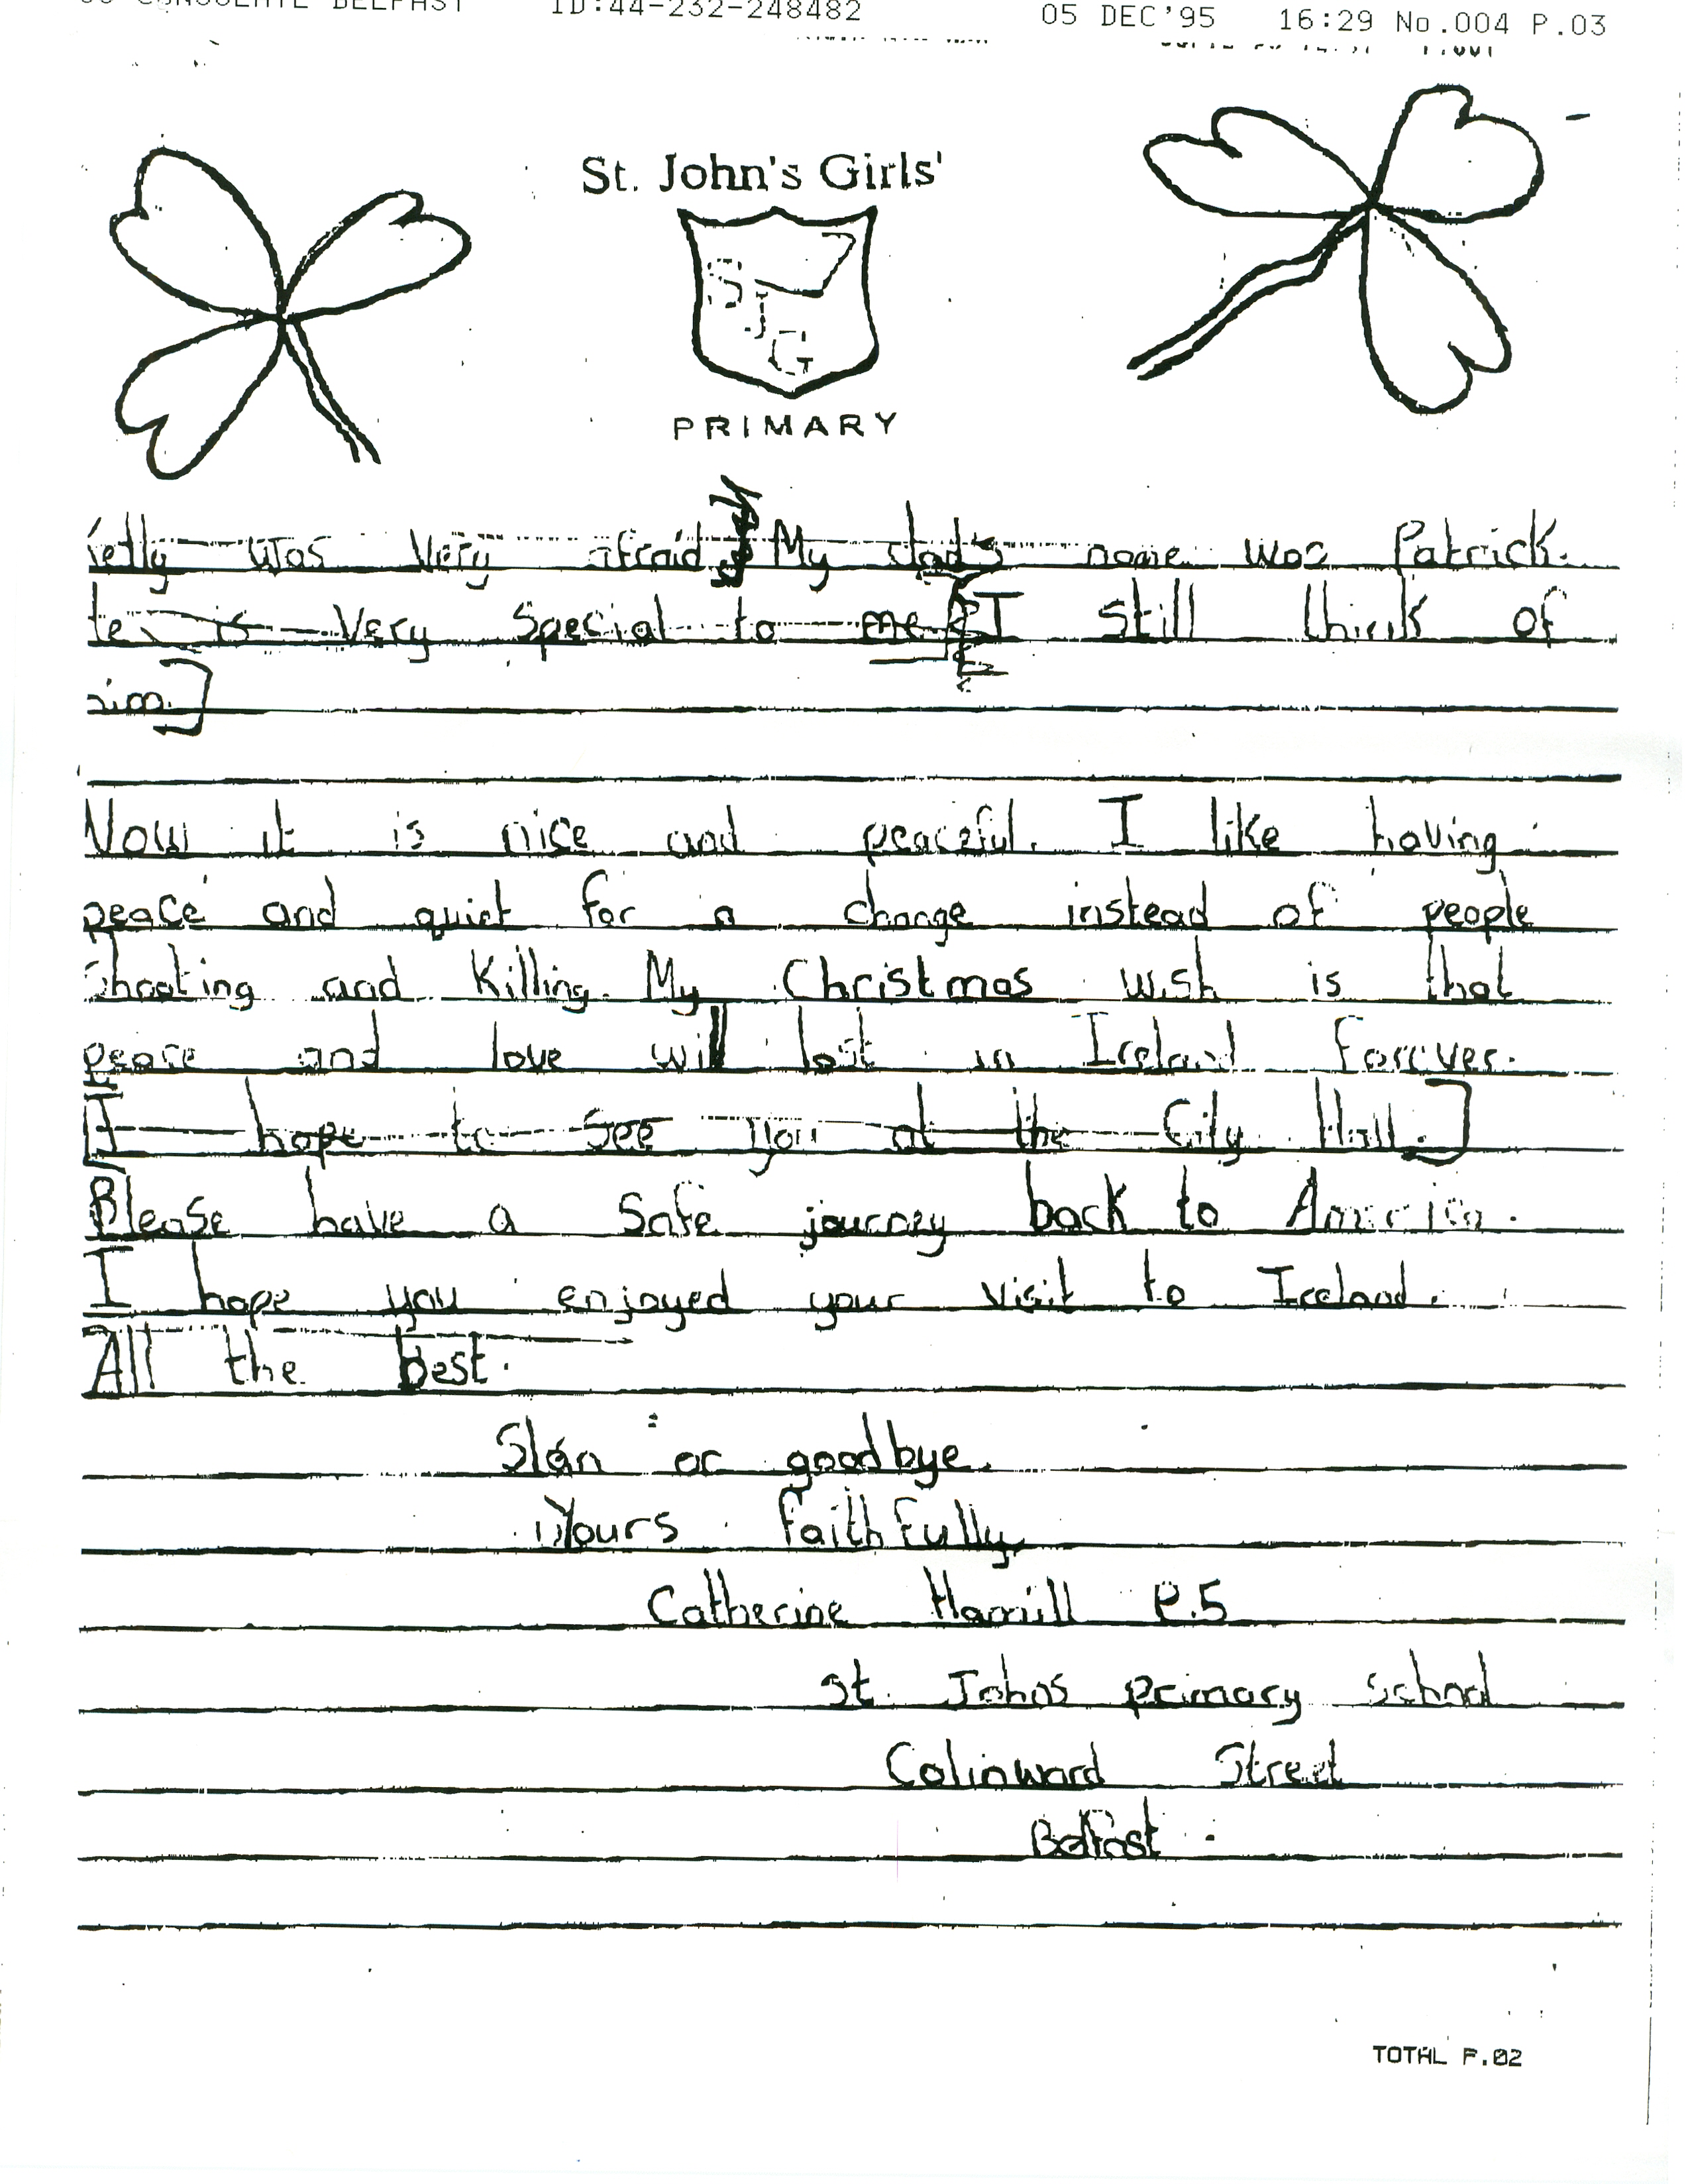 CONSULATE BELFAST ID:44-232-248482 05 DEC'95 16:29 No.004 P.03
St. John's Girls'
SJG
PRIMARY
was very afraid. My dad's name was Patrick.
is very special to me. [I still think of
him.]
Now it is nice and peaceful. I like having
peace and quiet for a change instead of people
Shooting and Killing. My Christmas wish is that
peace and love will last in Ireland forever.
[I hope to see you at the City Hall.]
Please have a safe journey back to America.
I hope you enjoyed your visit to Ireland.
All the best.
Slán or goodbye.
Yours faithfully
Catherine Hamill P.5
St. Johns primary school
Colinward Street
Belfast.
TOTAL P.02